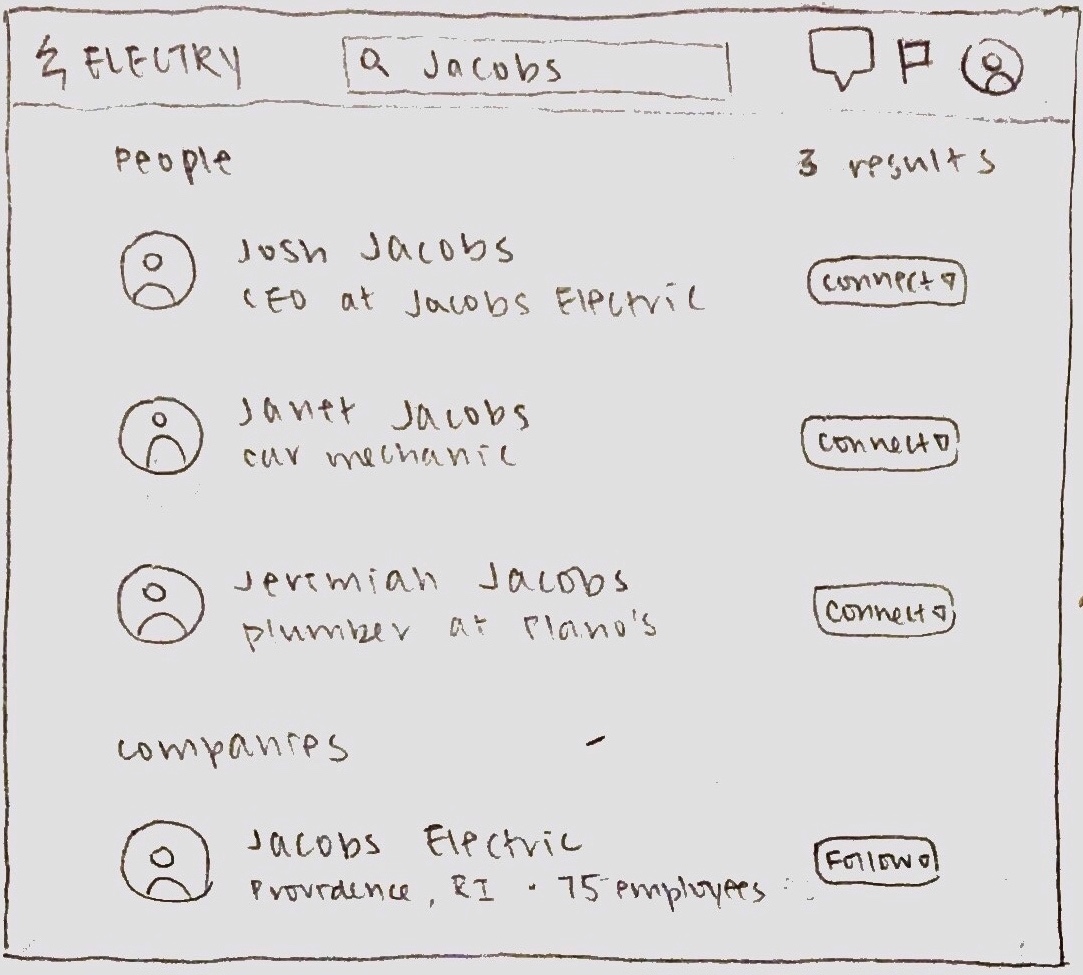 ELECTRY
Jacobs
People
3 results
Josh Jacobs
CEO at Jacobs Electric
connect
Janet Jacobs
car mechanic
connect
Jeremiah Jacobs
plumber at Plano's
connect
companies
Jacobs Electric
Providence, RI · 75 employees
Follow